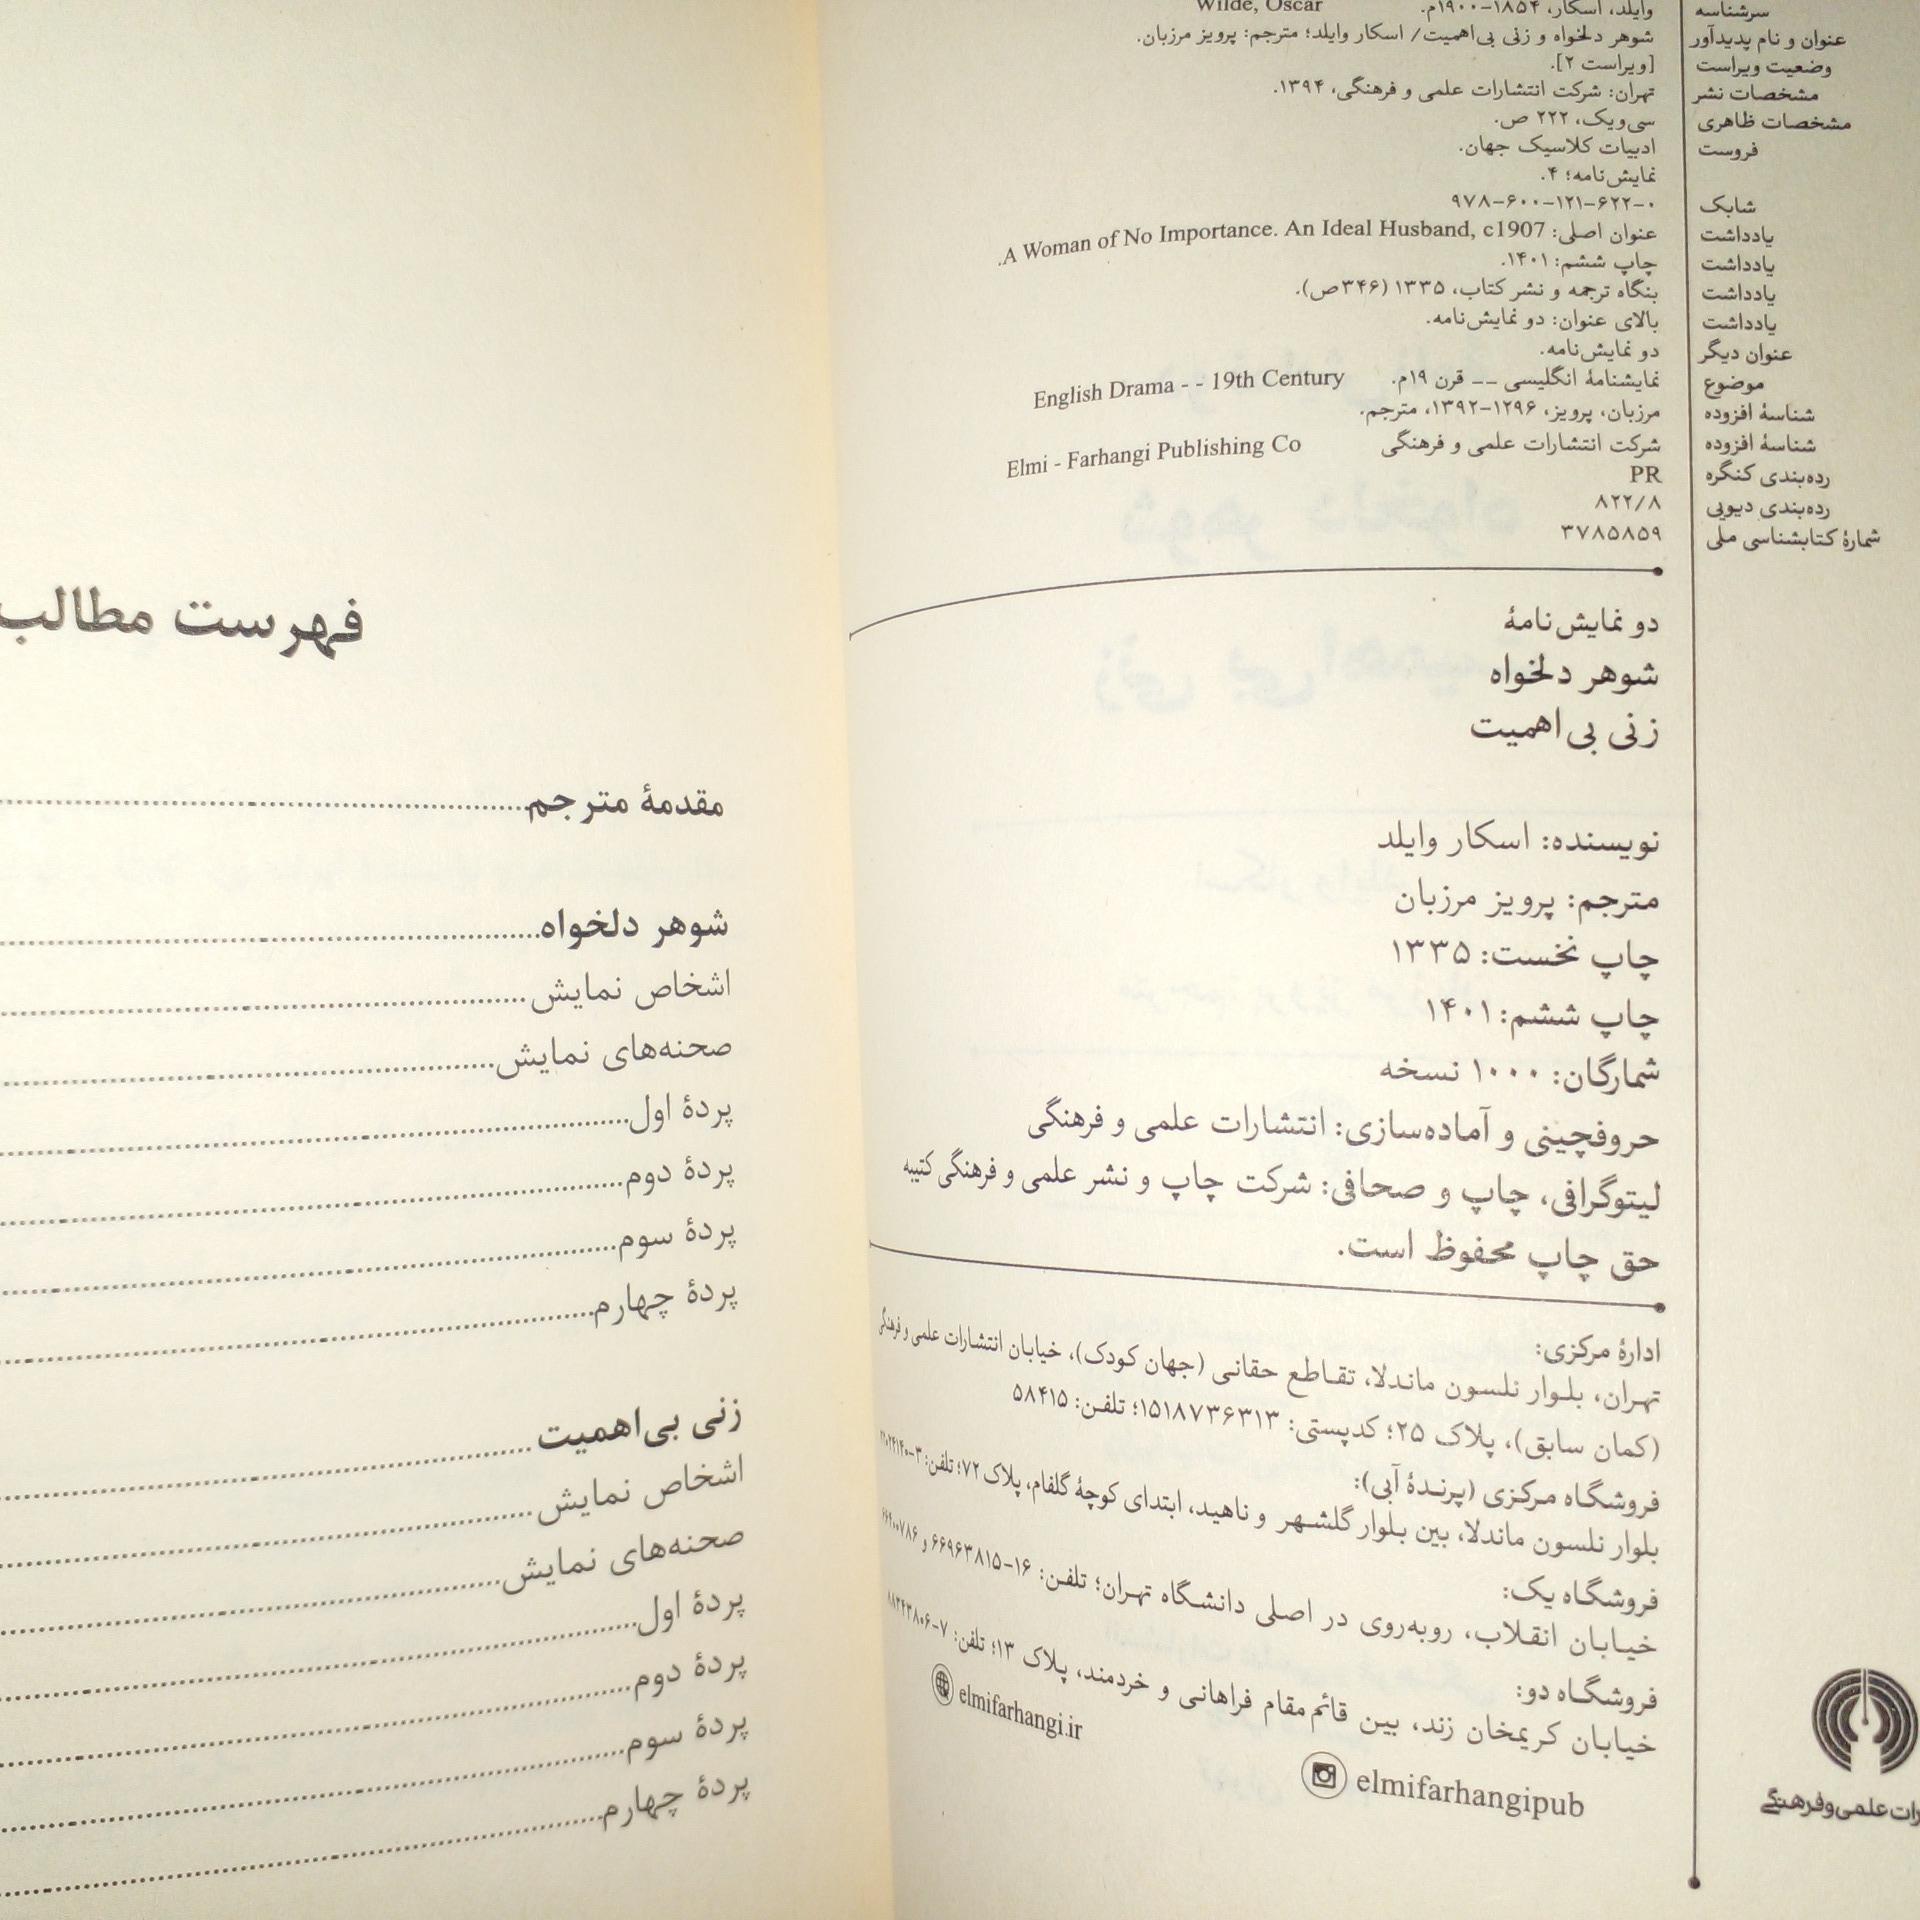 سرشناسه وایلد، اسکار، ۱۸۵۴–۱۹۰۰م. Wilde, Oscar
عنوان و نام پدیدآور شوهر دلخواه و زنی بی‌اهمیت/ اسکار وایلد؛ مترجم: پرویز مرزبان.
وضعیت ویراست [ویراست ۲].
مشخصات نشر تهران: شرکت انتشارات علمی و فرهنگی، ۱۳۹۴.
مشخصات ظاهری سی‌ویک، ۲۲۲ ص.
فروست ادبیات کلاسیک جهان.
نمایش‌نامه؛ ۴.
شابک ۹۷۸–۶۰۰–۱۲۱–۶۲۲–۰
یادداشت عنوان اصلی: A Woman of No Importance. An Ideal Husband, c1907.
یادداشت چاپ ششم: ۱۴۰۱.
یادداشت بنگاه ترجمه و نشر کتاب، ۱۳۳۵ (۳۴۶ص).
یادداشت بالای عنوان: دو نمایش‌نامه.
عنوان دیگر دو نمایش‌نامه.
موضوع نمایشنامهٔ انگلیسی -- قرن ۱۹م. English Drama - - 19th Century
شناسهٔ افزوده مرزبان، پرویز، ۱۲۹۶–۱۳۹۲، مترجم.
شناسهٔ افزوده شرکت انتشارات علمی و فرهنگی Elmi - Farhangi Publishing Co
رده‌بندی کنگره PR
رده‌بندی دیویی ۸۲۲/۸
شمارهٔ کتابشناسی ملی ۳۷۸۵۸۵۹
دو نمایش‌نامهٔ
شوهر دلخواه
زنی بی‌اهمیت
نویسنده: اسکار وایلد
مترجم: پرویز مرزبان
چاپ نخست: ۱۳۳۵
چاپ ششم: ۱۴۰۱
شمارگان: ۱۰۰۰ نسخه
حروفچینی و آماده‌سازی: انتشارات علمی و فرهنگی
لیتوگرافی، چاپ و صحافی: شرکت چاپ و نشر علمی و فرهنگی کتیبه
حق چاپ محفوظ است.
ادارهٔ مرکزی:
تهران، بلوار نلسون ماندلا، تقاطع حقانی (جهان کودک)، خیابان انتشارات علمی و فرهنگی
(کمان سابق)، پلاک ۲۵؛ کدپستی: ۱۵۱۸۷۳۶۳۱۳؛ تلفن: ۵۸۴۱۵
فروشگاه مرکزی (پرندهٔ آبی):
بلوار نلسون ماندلا، بین بلوار گلشهر و ناهید، ابتدای کوچهٔ گلفام، پلاک ۷۲؛ تلفن: ۳–۲۲۰۲۴۱۴۰
فروشگاه یک:
خیابان انقلاب، روبه‌روی در اصلی دانشگاه تهران؛ تلفن: ۱۶–۶۶۹۶۳۸۱۵ و ۶۶۴۰۰۷۸۶
فروشگاه دو:
خیابان کریمخان زند، بین قائم‌مقام فراهانی و خردمند، پلاک ۱۳؛ تلفن: ۷–۸۸۳۴۳۸۰۶
elmifarhangi.ir
elmifarhangipub
علمی و فرهنگی
فهرست مطالب
مقدمهٔ مترجم
شوهر دلخواه
اشخاص نمایش
صحنه‌های نمایش
پردهٔ اول
پردهٔ دوم
پردهٔ سوم
پردهٔ چهارم
زنی بی‌اهمیت
اشخاص نمایش
صحنه‌های نمایش
پردهٔ اول
پردهٔ دوم
پردهٔ سوم
پردهٔ چهارم